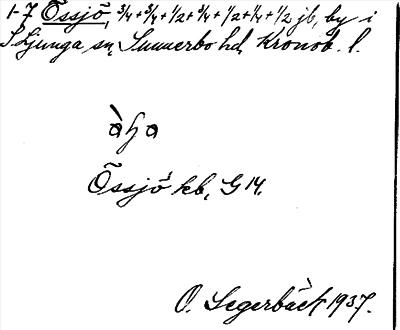 1-7 Össjö, 3/4+3/4+1/2+3/4+1/2+1/4+1/2 jb, by i
S Ljunga sn, Sunnerbo hd, Kronob. l.
Össjö kb, G 14.
O. Segerbäck 1937.